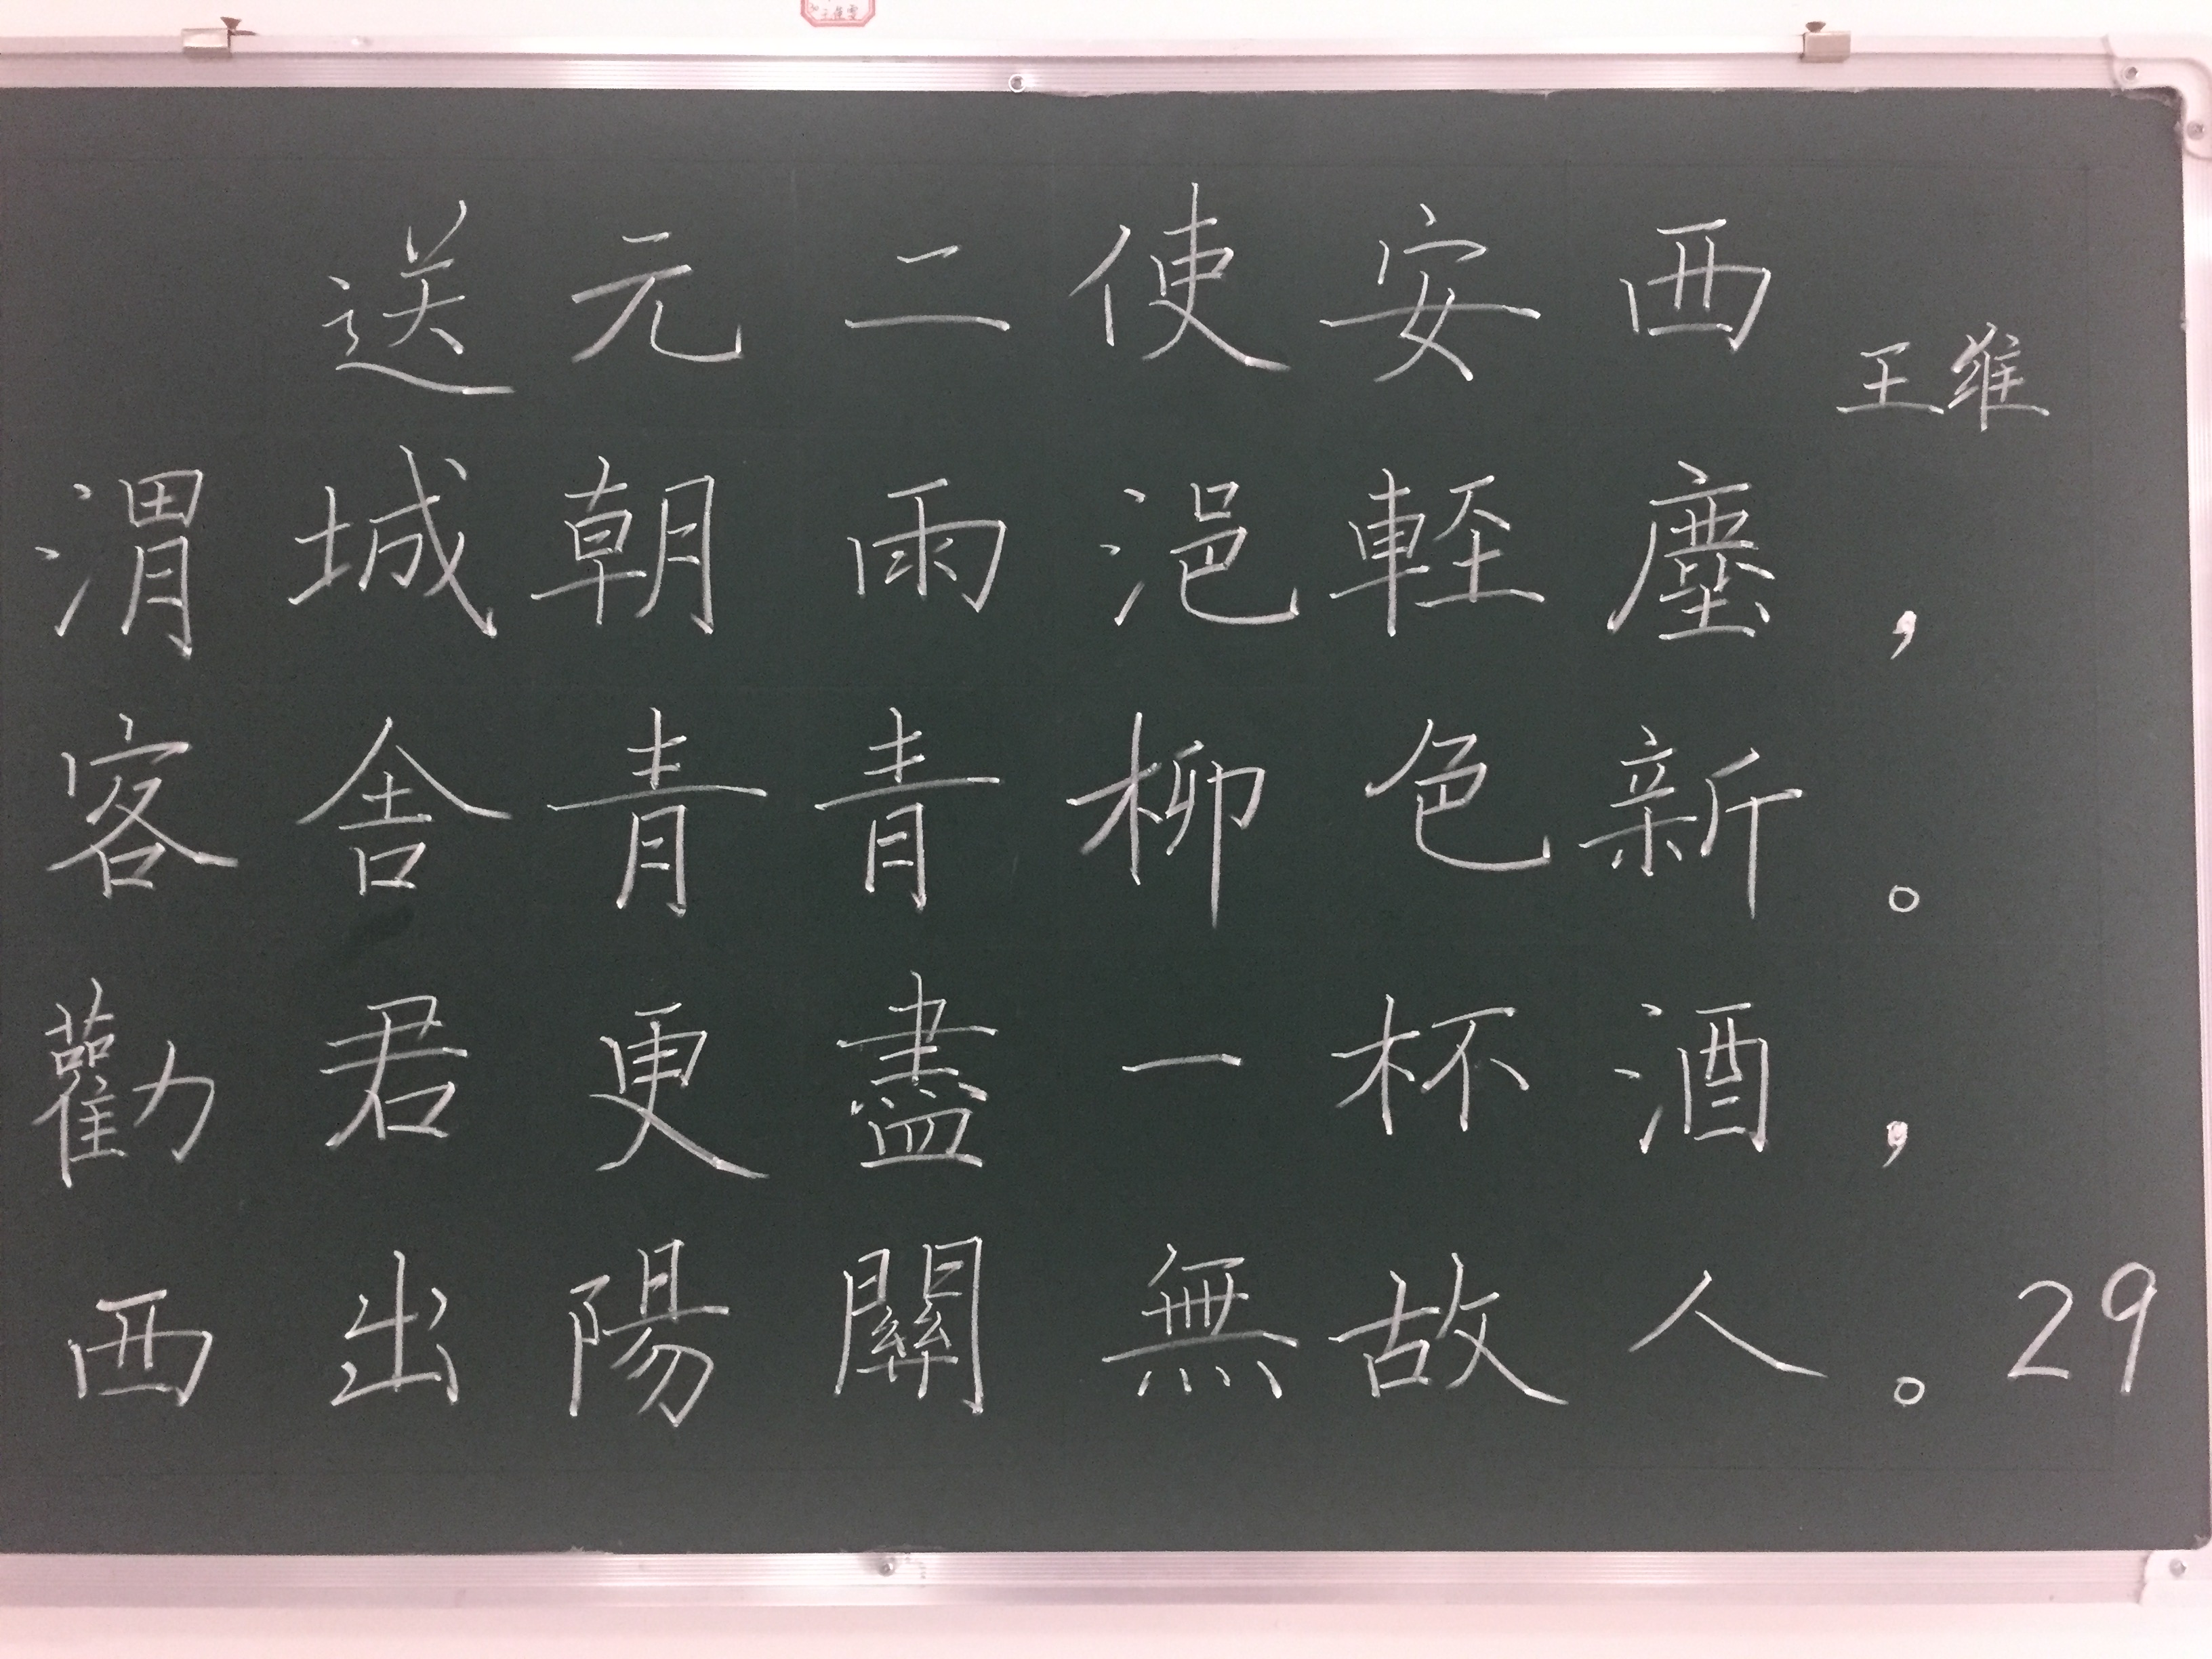 送元二使安西 王維
渭城朝雨浥軽塵，
客舎青青柳色新。
勸君更盡一杯酒，
西出陽關無故人。29